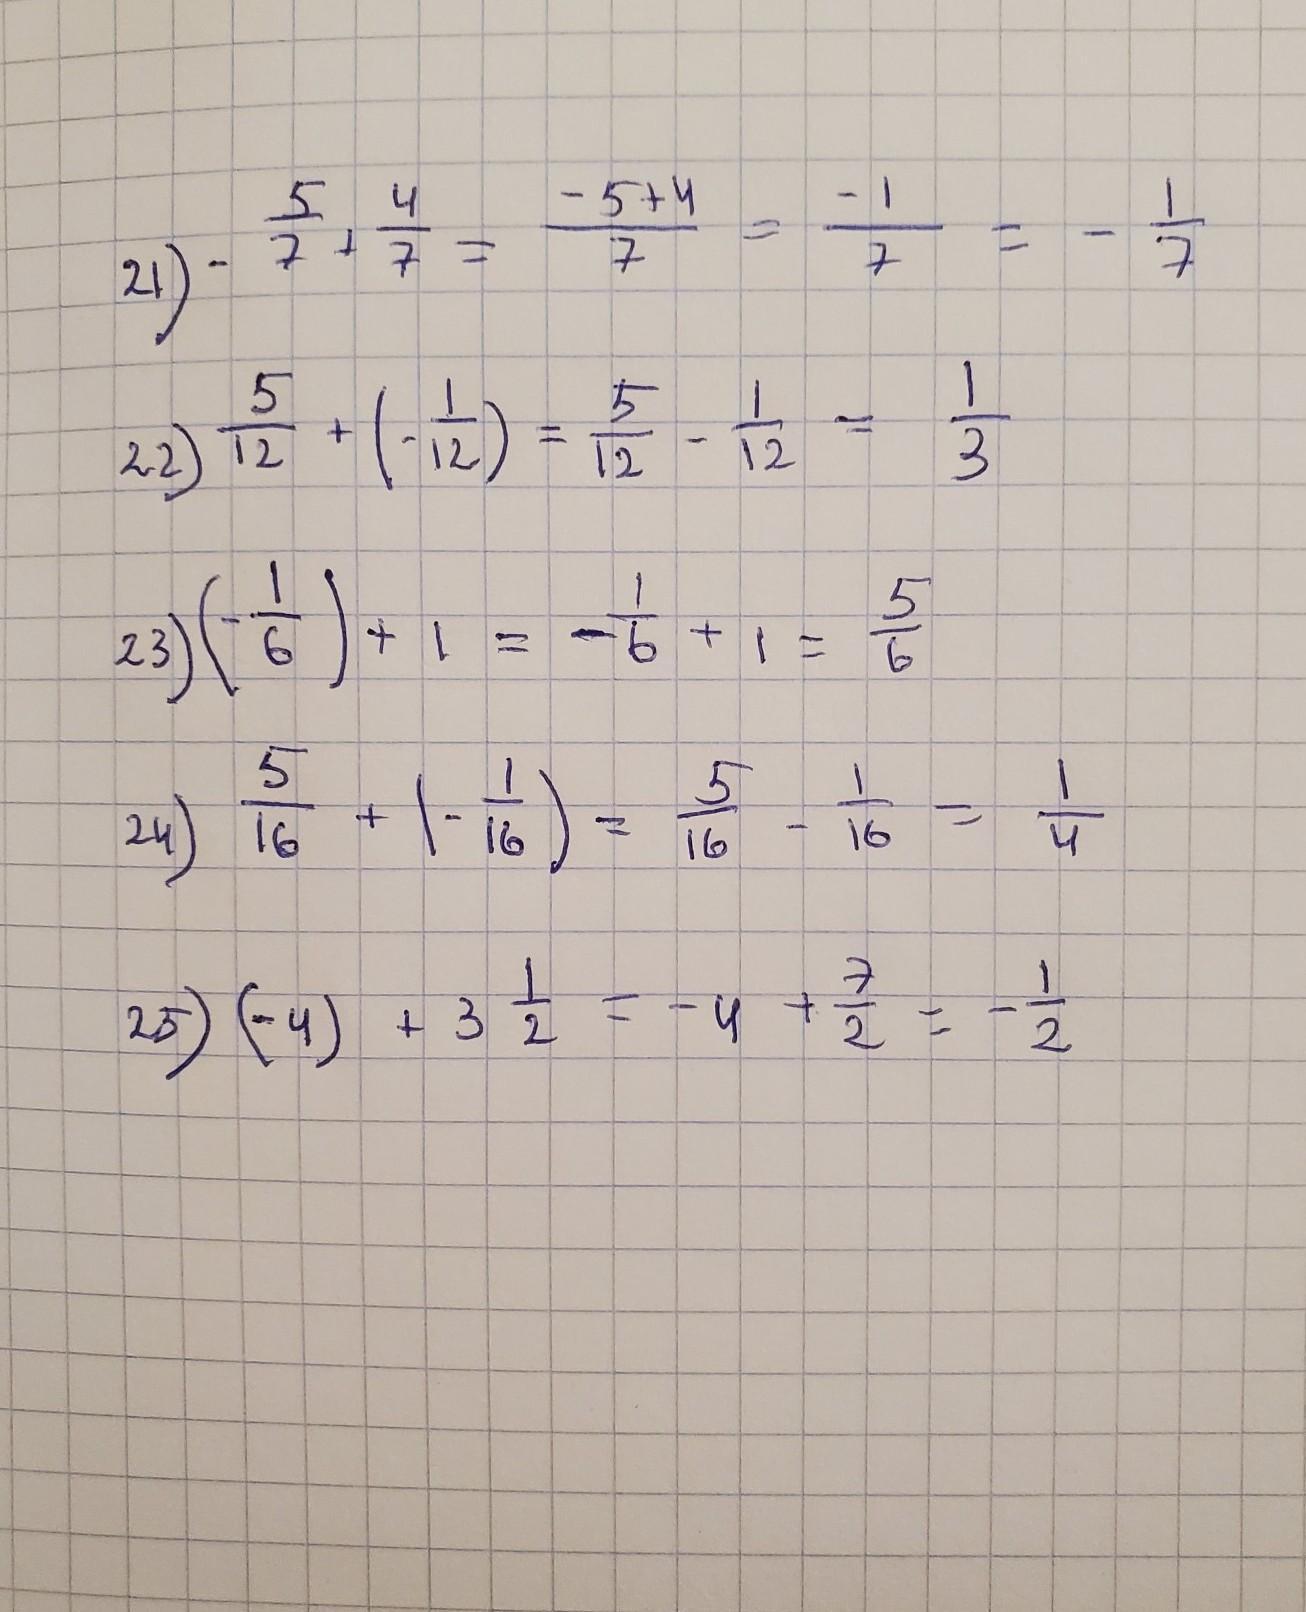 21) - 5/7 + 4/7 = (-5+4)/7 = -1/7 = - 1/7
22) 5/12 + (-1/12) = 5/12 - 1/12 = 1/3
23) (-1/6) + 1 = -1/6 + 1 = 5/6
24) 5/16 + (-1/16) = 5/16 - 1/16 = 1/4
25) (-4) + 3 1/2 = -4 + 7/2 = -1/2